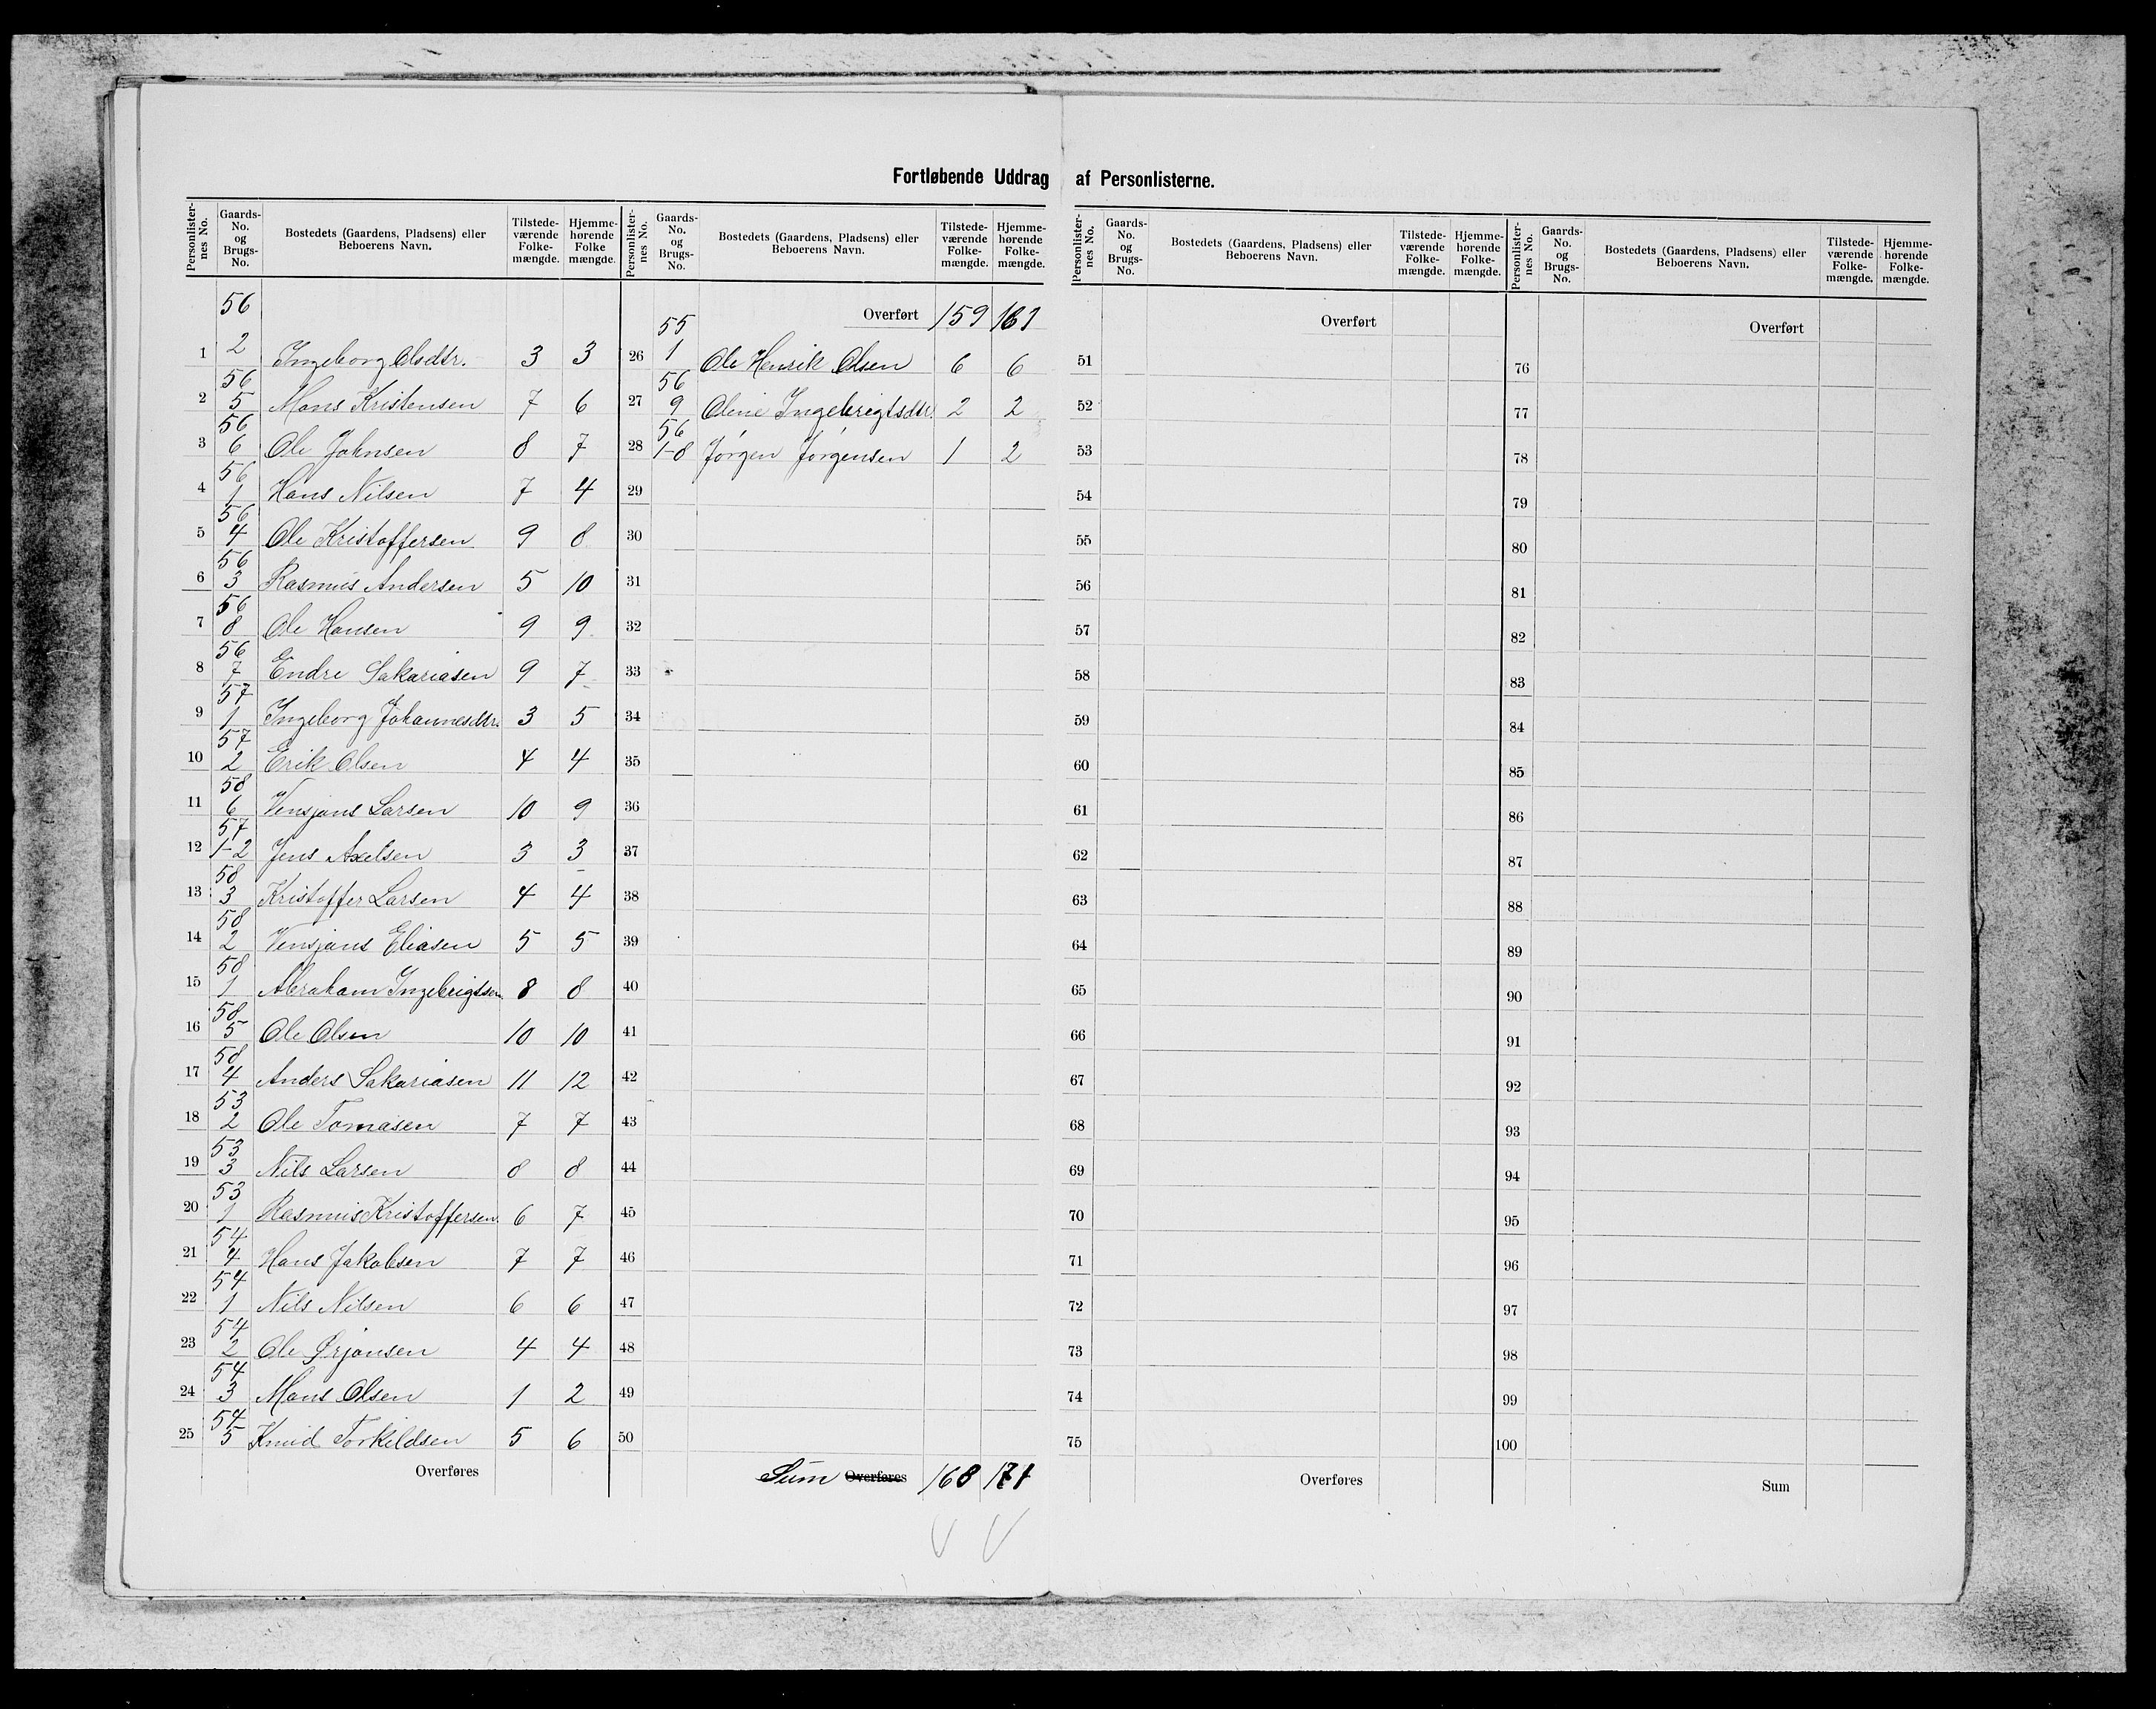 Fortløbende Uddrag af Personlisterne.
Personlisternes No. Gaards-No. og Brugs-No. Bostedets (Gaardens, Pladsens) eller Beboerens Navn. Tilstedeværende Folkemængde. Hjemmehørende Folkemængde.
1 56 2 Ingeborg Olsdtr. 3 3
2 56 5 Mons Kristensen 7 6
3 56 6 Ole Johnsen 8 7
4 56 1 Hans Nilsen 7 4
5 56 4 Ole Kristoffersen 9 8
6 56 3 Rasmus Andersen 5 10
7 56 8 Ole Hansen 9 9
8 56 7 Endre Sakariasen 9 7
9 57 1 Ingeborg Johannesdtr. 3 5
10 57 2 Erik Olsen 4 4
11 58 6 Vensjans Larsen 10 9
12 57 1-2 Jens Axelsen 3 3
13 58 3 Kristoffer Larsen 4 4
14 58 2 Vensjans Eliasen 5 5
15 58 1 Abraham Ingebrigtsen 8 8
16 58 5 Ole Olsen 10 10
17 58 4 Anders Sakariasen 11 12
18 53 2 Ole Tomasen 7 7
19 53 3 Nils Larsen 8 8
20 53 1 Rasmus Kristoffersen 6 7
21 54 4 Hans Jakobsen 7 7
22 54 1 Nils Nilsen 6 6
23 54 2 Ole Ørjansen 4 4
24 54 3 Mons Olsen 1 2
25 54 5 Knud Torkildsen 5 6
Overføres
Personlisternes No. Gaards-No. og Brugs-No. Bostedets (Gaardens, Pladsens) eller Beboerens Navn. Tilstedeværende Folkemængde. Hjemmehørende Folkemængde.
Overført 159 161
26 55 1 Ole Henrik Olsen 6 6
27 56 9 Oline Ingebrigtsdtr. 2 2
28 56 1-8 Jørgen Jørgensen 1 2
29
30
31
32
33
34
35
36
37
38
39
40
41
42
43
44
45
46
47
48
49
50
Sum Overføres 168 171
Personlisternes No. Gaards-No. og Brugs-No. Bostedets (Gaardens, Pladsens) eller Beboerens Navn. Tilstedeværende Folkemængde. Hjemmehørende Folkemængde.
Overført
51
52
53
54
55
56
57
58
59
60
61
62
63
64
65
66
67
68
69
70
71
72
73
74
75
Overføres
Personlisternes No. Gaards-No. og Brugs-No. Bostedets (Gaardens, Pladsens) eller Beboerens Navn. Tilstedeværende Folkemængde. Hjemmehørende Folkemængde.
Overført
76
77
78
79
80
81
82
83
84
85
86
87
88
89
90
91
92
93
94
95
96
97
98
99
100
Sum